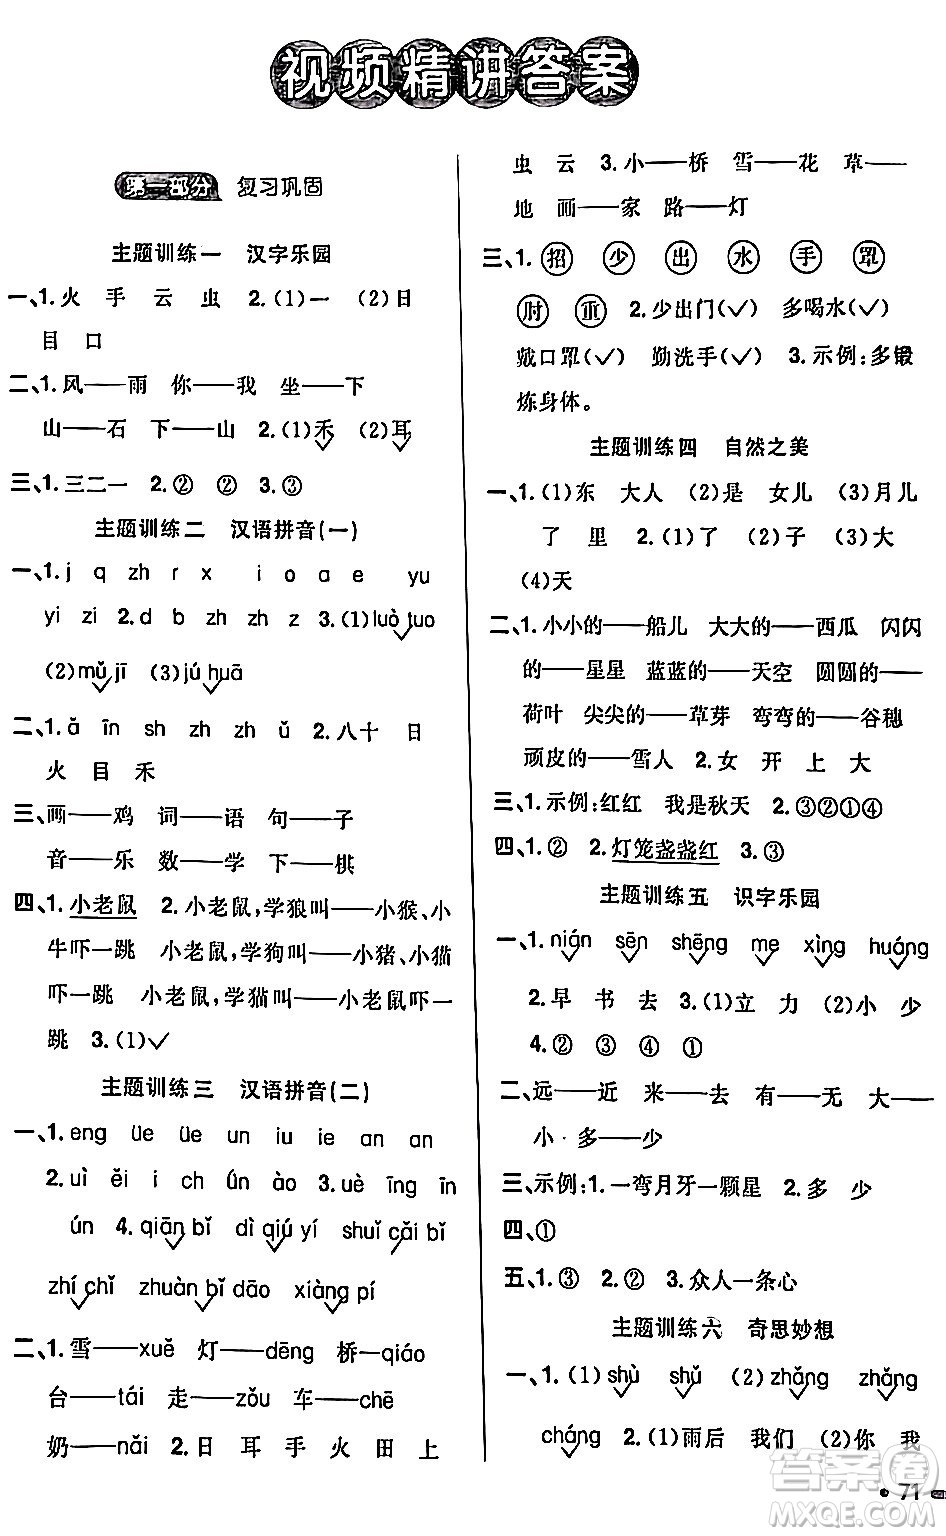 视频精讲答案
第一部分 复习巩固
主题训练一 汉字乐园
一、1.火 手 云 虫 2.(1)一 (2)日
目 口
二、1.风——雨 你——我 坐——下
山——石 下——山 2.(1)禾 (2)耳
三、1.三二一 2.② ② 3.③
主题训练二 汉语拼音(一)
一、1.j q zh r x i o a e yu
yi zi 2.d b zh zh z 3.(1)luò tuo
(2)mǔ jī (3)jú huā
二、1.ǎ īn sh zh zh ǔ 2.八十 日
火 目 禾
三、画——鸡 词——语 句——子
音——乐 数——学 下——棋
四、1.小老鼠 2.小老鼠,学狼叫——小猴、小
牛吓一跳 小老鼠,学狗叫——小猪、小猫
吓一跳 小老鼠,学猫叫——小老鼠吓一
跳 3.(1)✓
主题训练三 汉语拼音(二)
一、1.eng üe üe un iu ie an an
2.uì ěi i ch ún ào 3.uè īng īn
ún 4.qiān bǐ dì qiú yí shuǐ cǎi bǐ
zhí chǐ zhuàn bǐ dāo xiàng pí
二、1.雪——xuě 灯——dēng 桥—qiáo
台——tái 走——zǒu 车——chē
奶——nǎi 2.日 耳 手 火 田 上
虫 云 3.小——桥 雪——花 草——
地 画——家 路——灯
三、1.招 少 出 水 手 罩
肘 重 2.少出门(✓) 多喝水(✓)
戴口罩(✓) 勤洗手(✓) 3.示例:多锻
炼身体。
主题训练四 自然之美
一、1.(1)东 大人 (2)是 女儿 (3)月儿
了 里 2.(1)了 (2)子 (3)大
(4)天
二、1.小小的——船儿 大大的——西瓜 闪闪
的——星星 蓝蓝的——天空 圆圆的——
荷叶 尖尖的——草芽 弯弯的——谷穗
顽皮的——雪人 2.女 开 上 大
三、1.示例:红红 我是秋天 2.③②①④
四、1.② 2.灯笼盏盏红 3.③
主题训练五 识字乐园
一、1.nián sēn shēng me xìng huáng
2.早 书 去 3.(1)立 力 (2)小 少
4.② ③ ④ ①
二、远——近 来——去 有——无 大——
小 多——少
三、示例:1.一弯月牙一颗星 2.多 少
四、①
五、1.③ 2.② 3.众人一条心
主题训练六 奇思妙想
一、1.(1)shù shǔ (2)zhǎng zhǎng
cháng 2.(1)雨后 我们 (2)你 我
答案圈
MXQE.COM
71